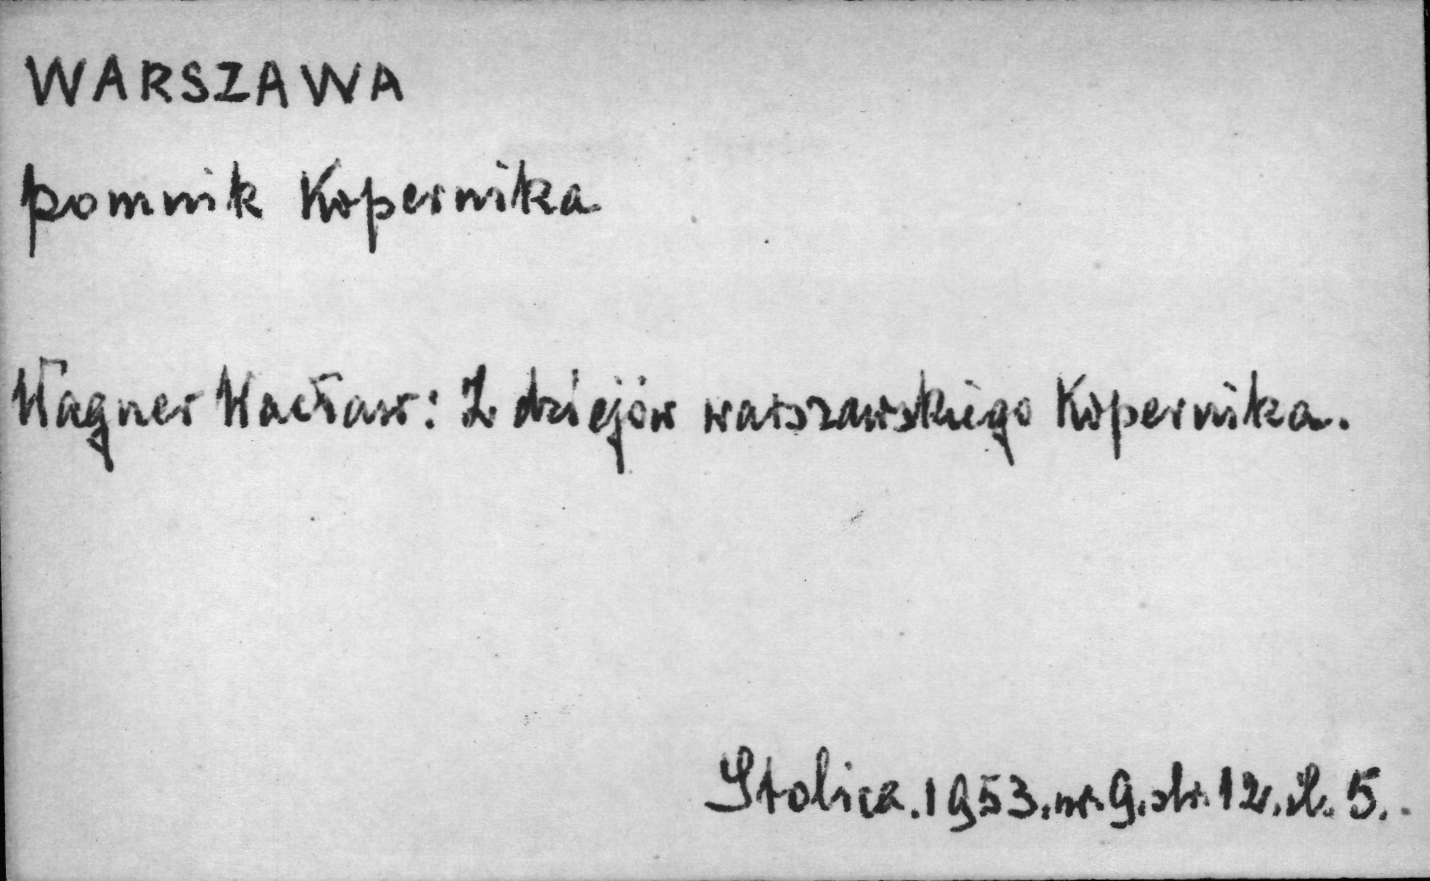 WARSZAWA
pomnik Kopernika
Wagner Wacław: Z dziejów warszawskiego Kopernika.
Stolica. 1953. nr. 9. str. 12. il. 5.